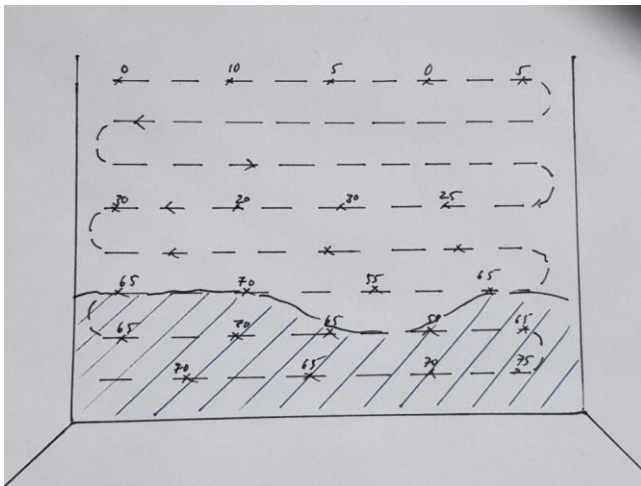 0 10 5 0 5
30 20 30 25
65 70 55 65
65 70 65 50 65
70 65 70 75